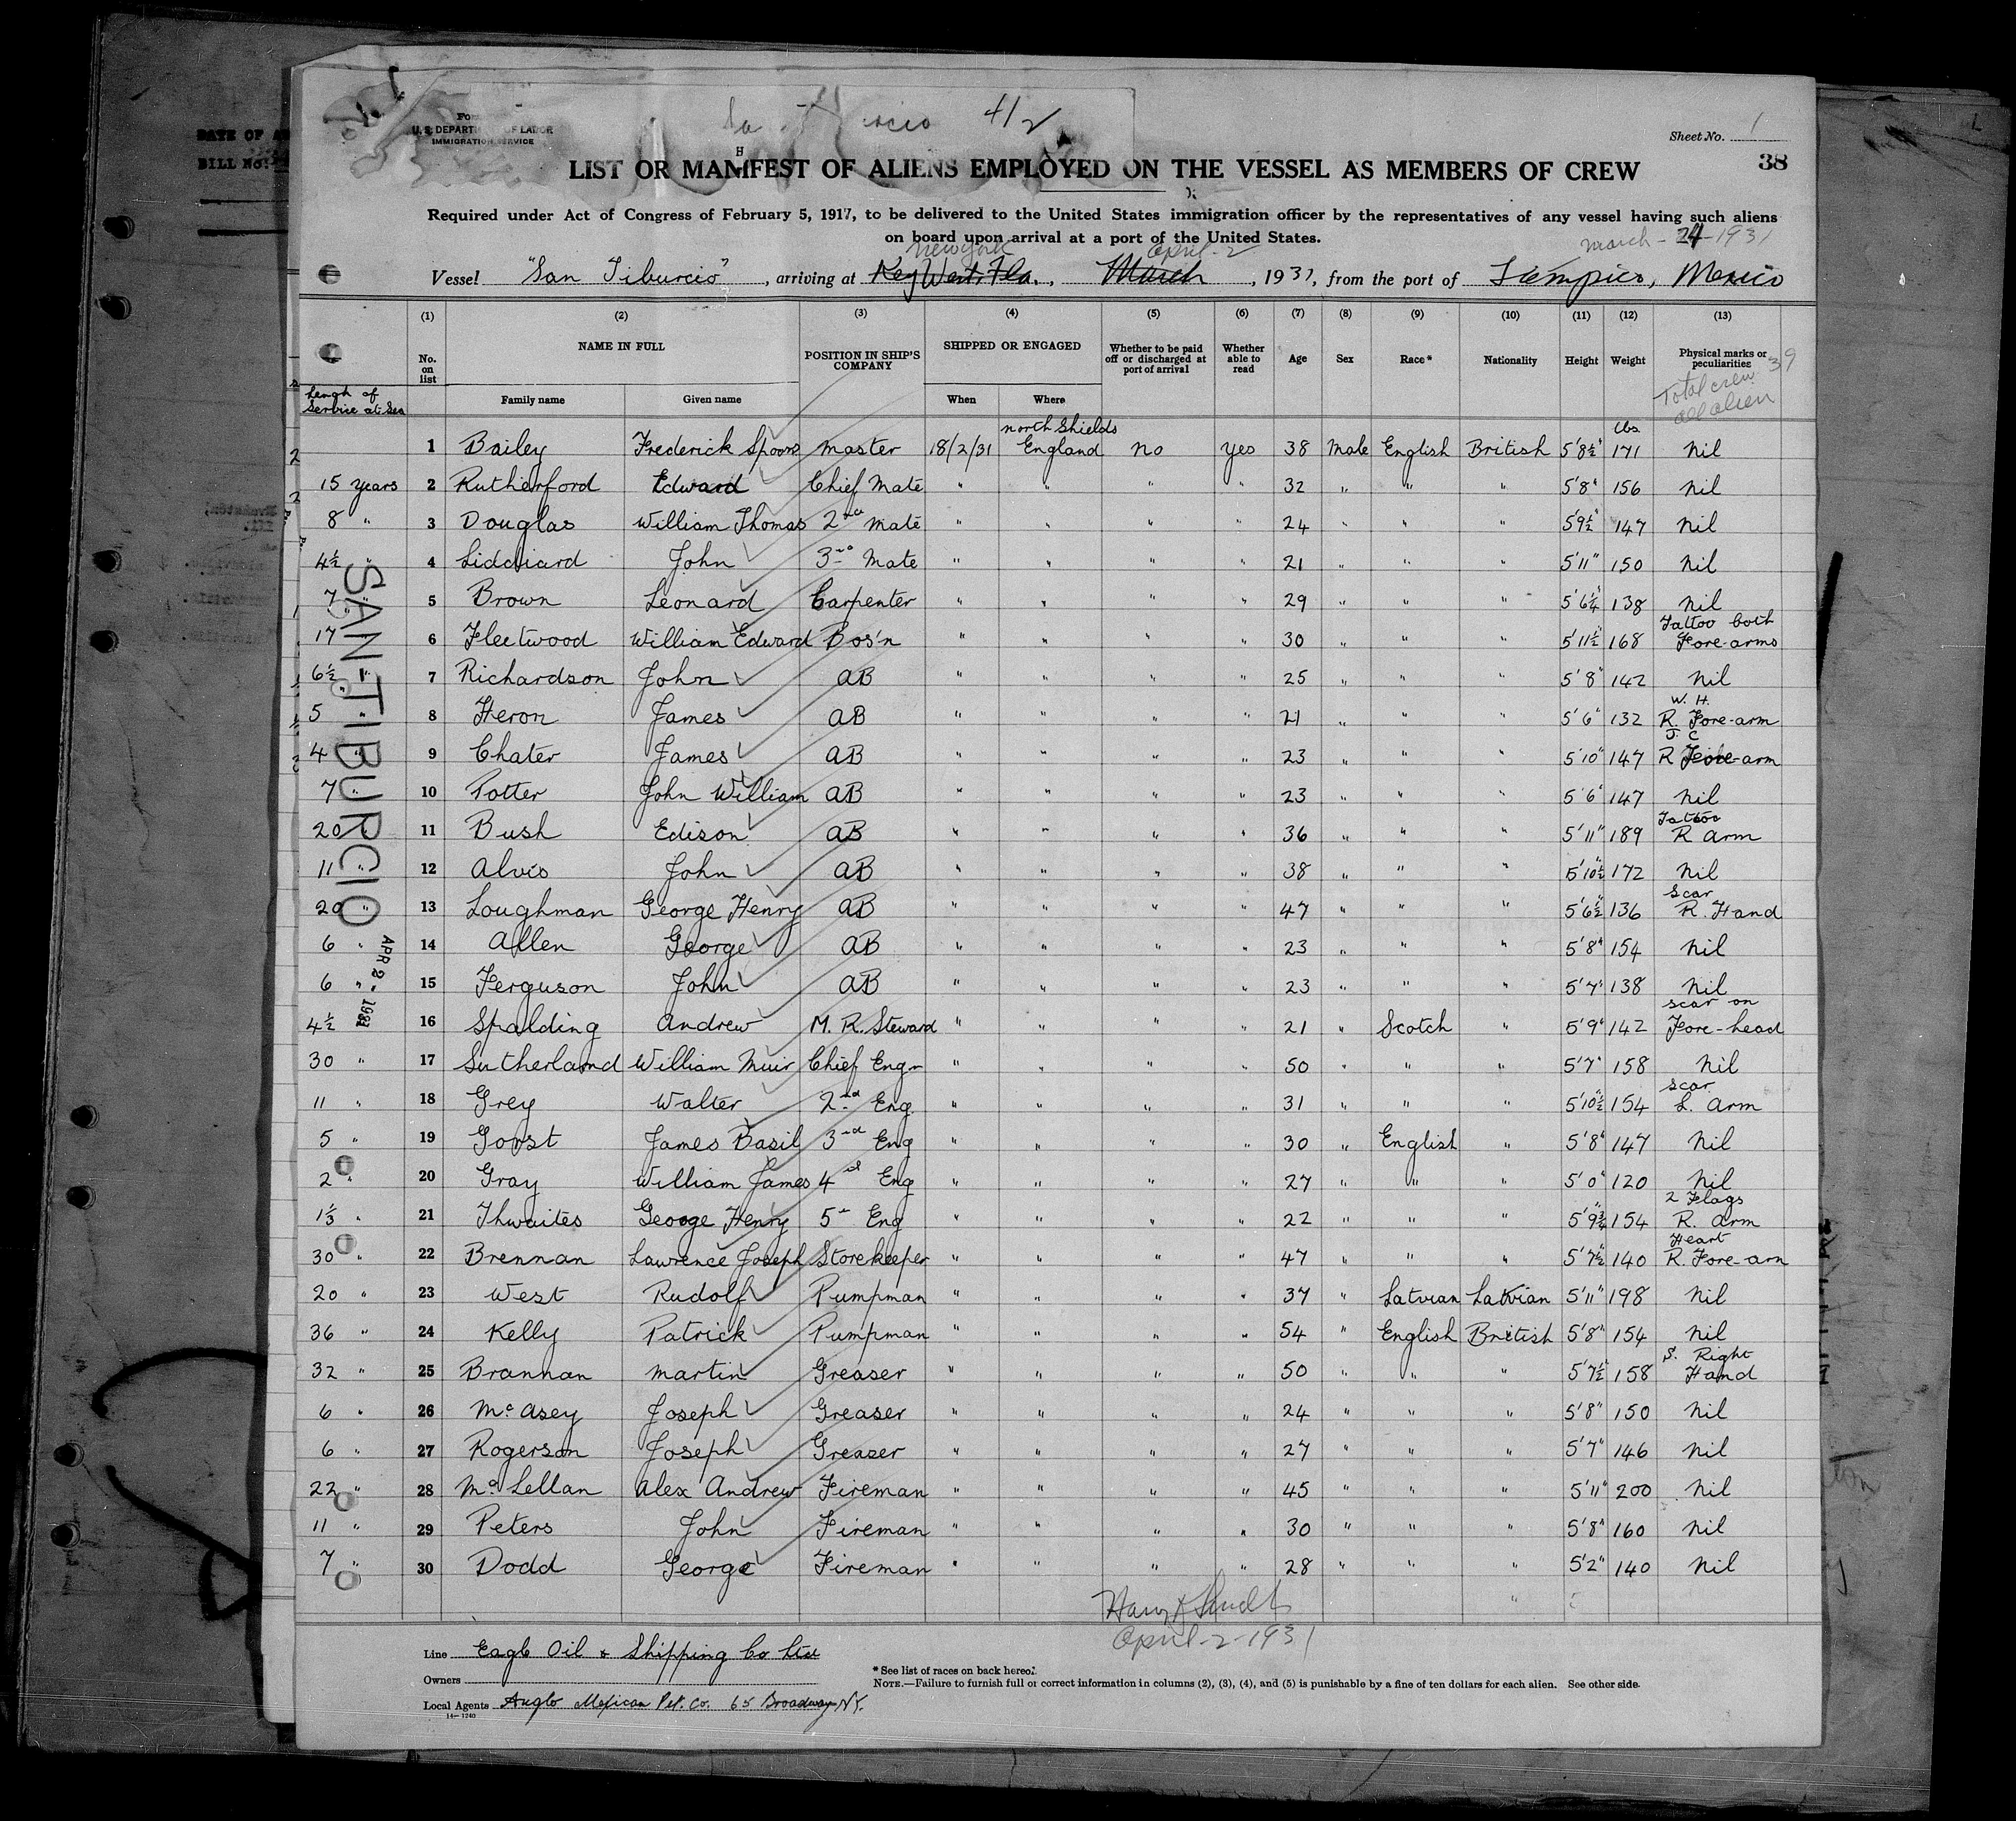 DATE OF A
BILL No.
41/2
U. S. DEPARTMENT OF LABOR
IMMIGRATION SERVICE
Sheet No. 1
38
LIST OR MANIFEST OF ALIENS EMPLOYED ON THE VESSEL AS MEMBERS OF CREW
Required under Act of Congress of February 5, 1917, to be delivered to the United States immigration officer by the representatives of any vessel having such aliens
on board upon arrival at a port of the United States.
New York April - 2 March - 24 - 1931
Vessel "San Tiburcio", arriving at Key West, Fla., March, 1931, from the port of Tampico, Mexico
(1) (2) (3) (4) (5) (6) (7) (8) (9) (10) (11) (12) (13)
No. on list NAME IN FULL POSITION IN SHIP'S COMPANY SHIPPED OR ENGAGED Whether to be paid off or discharged at port of arrival Whether able to read Age Sex Race* Nationality Height Weight Physical marks or peculiarities
39
Total crew
all alien
Length of Service at Sea Family name Given name When Where
1 Bailey Frederick Spoors Master 18/2/31 North Shields England No Yes 38 Male English British 5'8½" lbs. 171 Nil
15 years 2 Rutherford Edward Chief Mate " " " " 32 " " " 5'8" 156 Nil
8 " 3 Douglas William Thomas 2nd Mate " " " " 24 " " " 5'9½" 147 Nil
4½ " 4 Lidduard John 3rd Mate " " " " 21 " " " 5'11" 150 Nil
7 " 5 Brown Leonard Carpenter " " " " 29 " " " 5'6¼" 138 Nil
17 " 6 Fleetwood William Edward Bos'n " " " " 30 " " " 5'11½" 168 Tattoo both Fore-arms
6½ " 7 Richardson John AB " " " " 25 " " " 5'8" 142 Nil
5 " 8 Heron James AB " " " " 21 " " " 5'6" 132 W. H. R. Fore-arm
4 " 9 Chater James AB " " " " 23 " " " 5'10" 147 J. C R Fore-arm
7 " 10 Potter John William AB " " " " 23 " " " 5'6" 147 Nil
20 " 11 Bush Edison AB " " " " 36 " " " 5'11" 189 Tattoo R Arm
11 " 12 Alvis John AB " " " " 38 " " " 5'10½" 172 Nil
20 " 13 Loughman George Henry AB " " " " 47 " " " 5'6½" 136 Scar R. Hand
6 " 14 Allen George AB " " " " 23 " " " 5'8" 154 Nil
6 " 15 Ferguson John AB " " " " 23 " " " 5'7" 138 Nil
4½ 16 Spalding Andrew M. R. Steward " " " " 21 " Scotch " 5'9" 142 Scar on Fore-head
30 " 17 Sutherland William Muir Chief Engr " " " " 50 " " " 5'7" 158 Nil
11 " 18 Grey Walter 2nd Eng. " " " " 31 " " " 5'10½" 154 Scar L. Arm
5 " 19 Goost James Basil 3rd Eng " " " " 30 " English " 5'8" 147 Nil
2 " 20 Gray William James 4th Eng " " " " 27 " " " 5'0" 120 Nil
1⅓ " 21 Thwaites George Henry 5th Eng " " " " 22 " " " 5'9¾" 154 2 Flags R. Arm
30 " 22 Brennan Lawrence Joseph Storekeeper " " " " 47 " " " 5'7½" 140 Heart R. Fore-arm
20 " 23 West Rudolf Pumpman " " " " 37 " Latvian Latvian 5'11" 198 Nil
36 " 24 Kelly Patrick Pumpman " " " " 54 " English British 5'8" 154 Nil
32 " 25 Brannan Martin Greaser " " " " 50 " " " 5'7½" 158 S. Right Hand
6 " 26 Mc Asey Joseph Greaser " " " " 24 " " " 5'8" 150 Nil
6 " 27 Rogerson Joseph Greaser " " " " 27 " " " 5'7" 146 Nil
22 " 28 Mc Lellan Alex Andrew Fireman " " " " 45 " " " 5'11" 200 Nil
11 " 29 Peters John Fireman " " " " 30 " " " 5'8" 160 Nil
7 " 30 Dodd George Fireman " " " " 28 " " " 5'2" 140 Nil
SAN-TIBURCIO
APR 2 - 1931
April-2-1931
Line Eagle Oil & Shipping Co Ltd
Owners
Local Agents Anglo Mexican Pet. Co. 65 Broadway N.Y.
14-1240
* See list of races on back hereof.
NOTE.—Failure to furnish full or correct information in columns (2), (3), (4), and (5) is punishable by a fine of ten dollars for each alien. See other side.